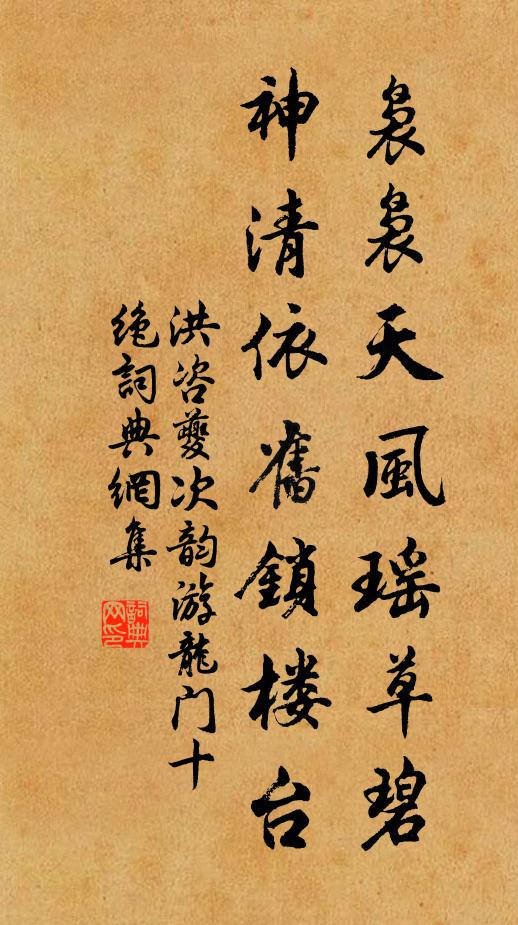 袅袅天風瑶草碧
神清依舊鎖楼台
洪咨夔次韵游龍门十
绝詞典網集
詞典网印